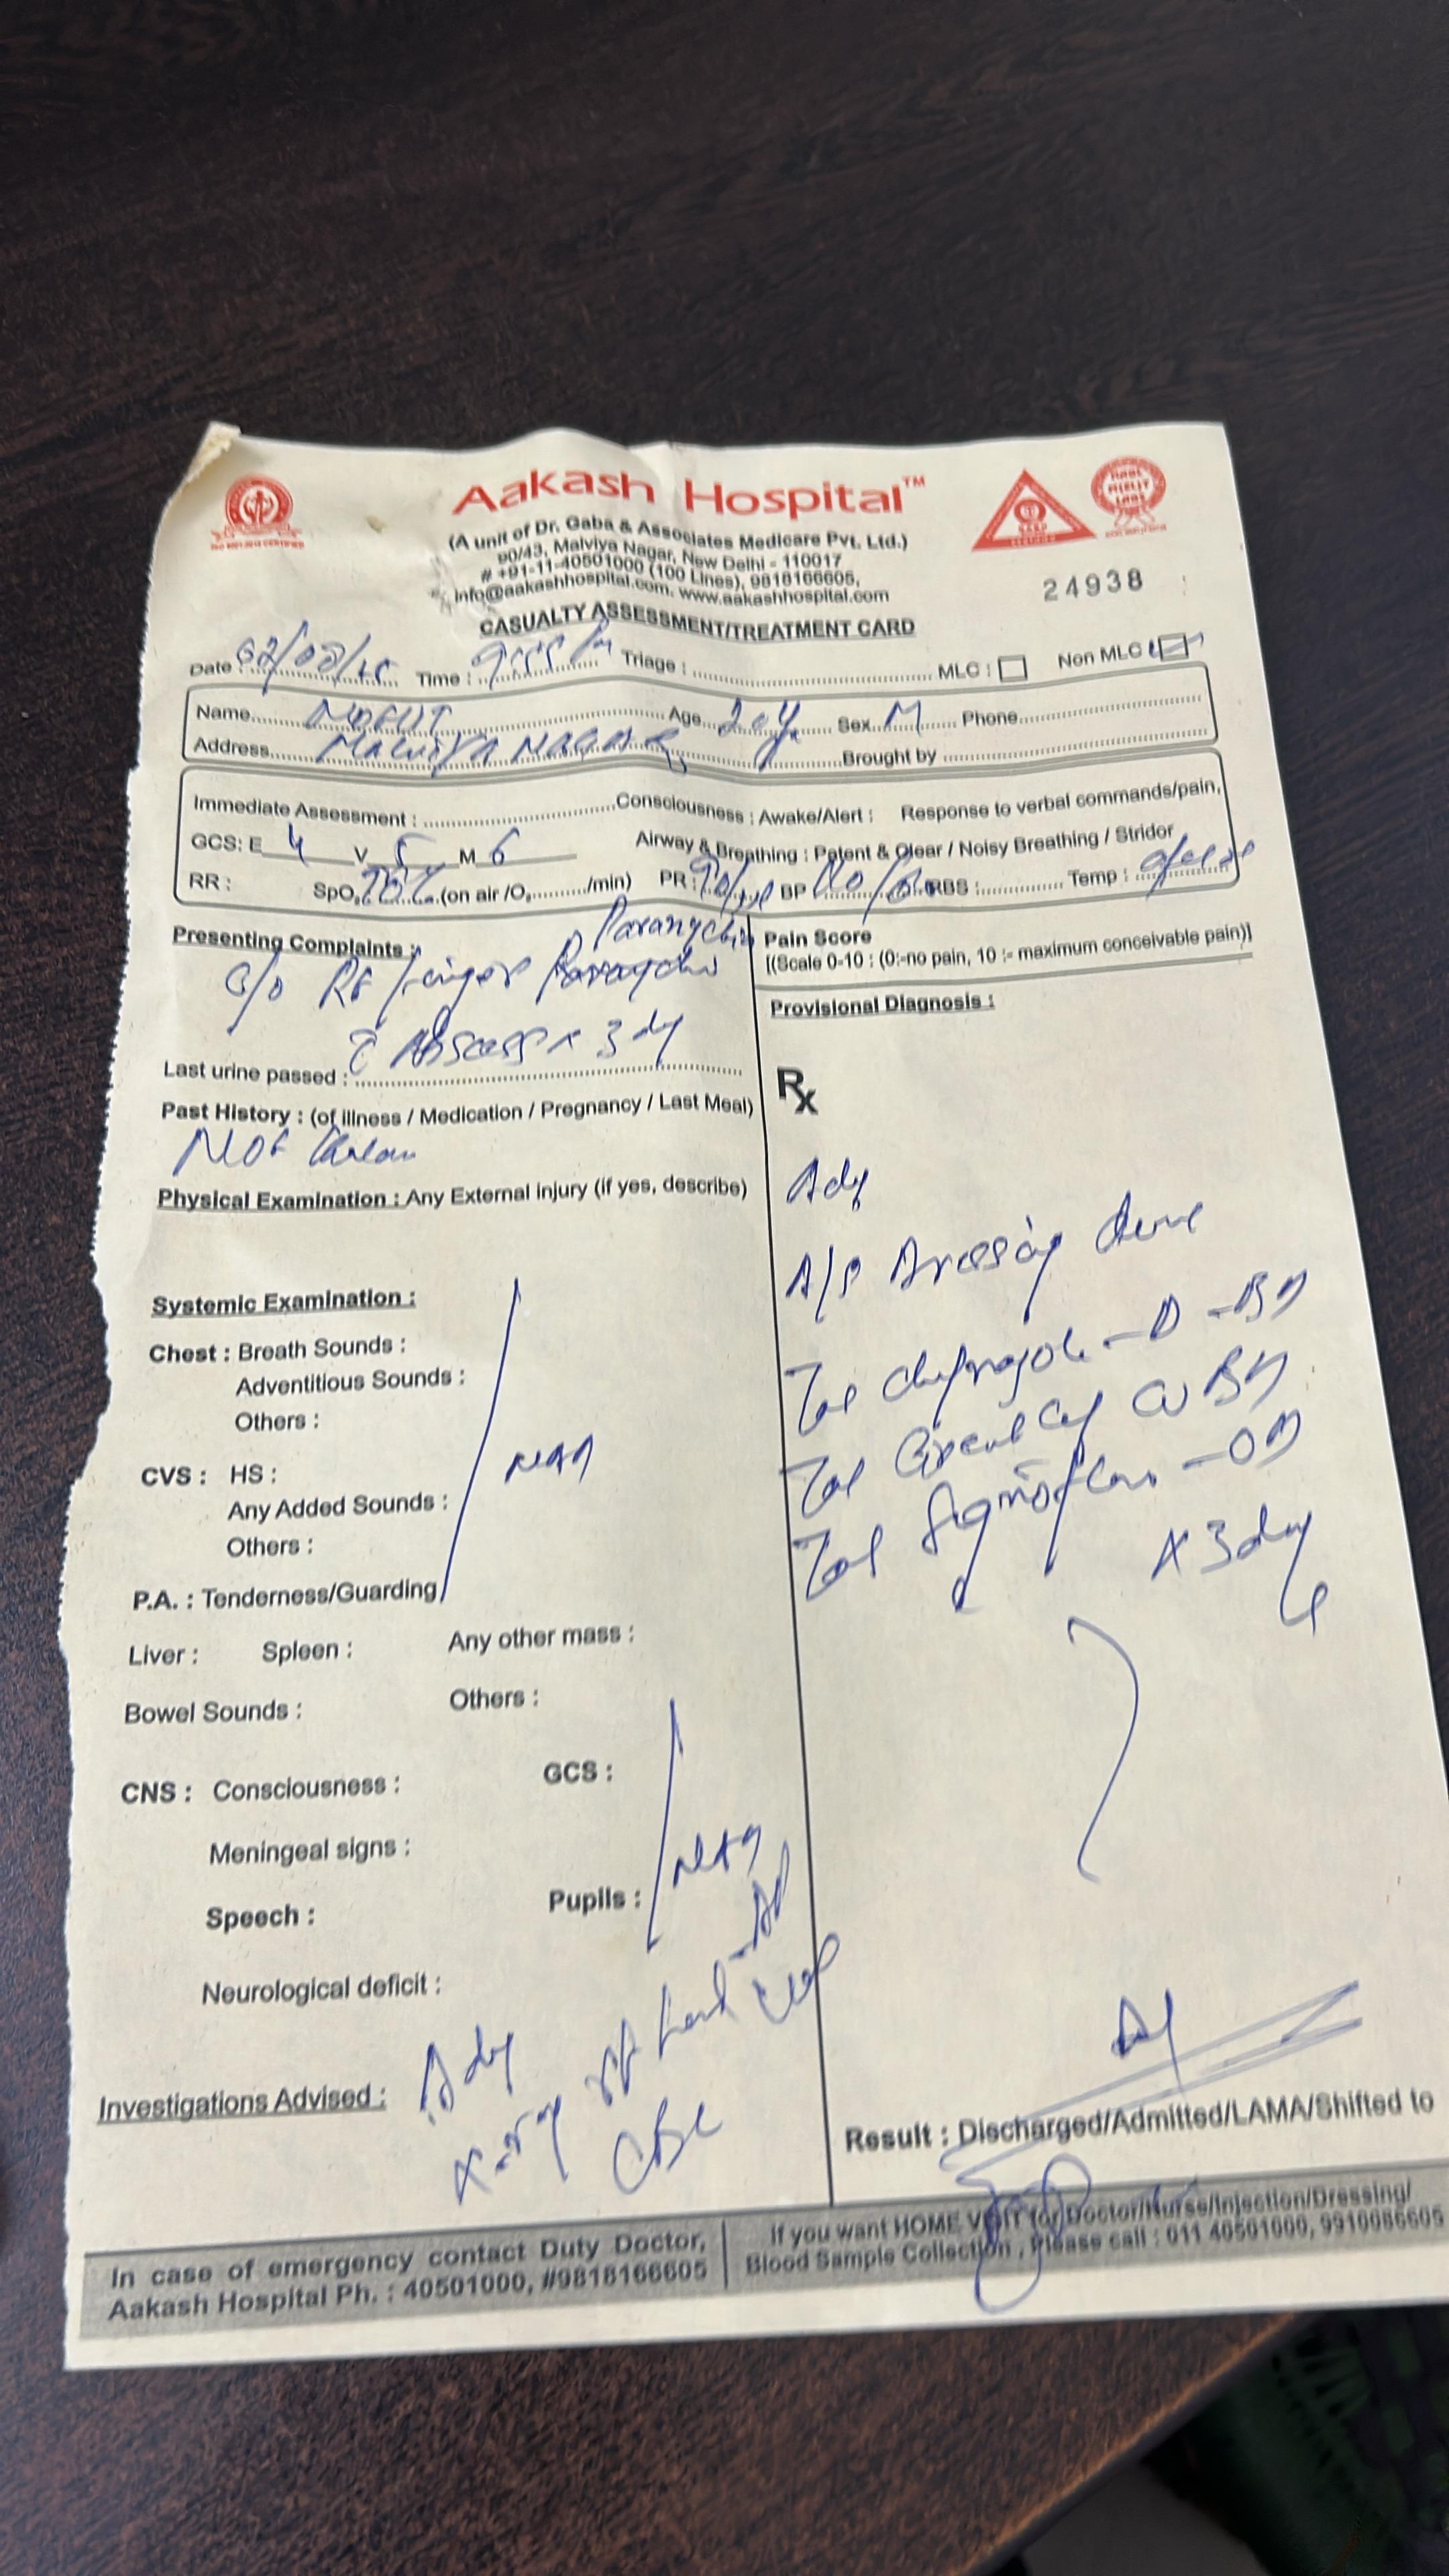 Aakash Hospital™
(A unit of Dr. Gaba & Associates Medicare Pvt. Ltd.)
90/43, Malviya Nagar, New Delhi - 110017
# +91-11-40501000 (100 Lines), 9818166605,
info@aakashhospital.com, www.aakashhospital.com
24938
CASUALTY ASSESSMENT/TREATMENT CARD
Date : Time : Triage : MLC : Non MLC :
Name Age Sex M Phone
Address Malviya Nagar Brought by
Immediate Assessment : Consciousness : Awake/Alert : Response to verbal commands/pain,
GCS: E 4 V 5 M 6 Airway & Breathing : Patent & Clear / Noisy Breathing / Stridor
RR : SpO2 98% (on air /O2 /min) PR : BP RBS : Temp :
Presenting Complaints : Paronychia
c/o Rt finger Paronychia
Abscess x 3 day
Last urine passed :
Past History : (of illness / Medication / Pregnancy / Last Meal)
Not
Physical Examination : Any External injury (if yes, describe)
Systemic Examination :
Chest : Breath Sounds :
Adventitious Sounds :
Others :
CVS : HS :
NAD
Any Added Sounds :
Others :
P.A. : Tenderness/Guarding
Liver : Spleen : Any other mass :
Bowel Sounds : Others :
CNS : Consciousness : GCS :
Meningeal signs :
NAD
Speech : Pupils :
Neurological deficit :
Investigations Advised : Adv
X-ray Rt hand - AP
CBC
Pain Score
[(Scale 0-10 : (0:-no pain, 10 :- maximum conceivable pain)]
Provisional Diagnosis :
Rx
Adv
A/S Dressing done
Tab - D - BD
Tab CV BD
Tab - OD
x 3 day
Result : Discharged/Admitted/LAMA/Shifted to
In case of emergency contact Duty Doctor,
Aakash Hospital Ph. : 40501000, #9818166605
If you want HOME VISIT for Doctor/Nurse/Injection/Dressing/
Blood Sample Collection , Please call : 011 40501000, 9910086605